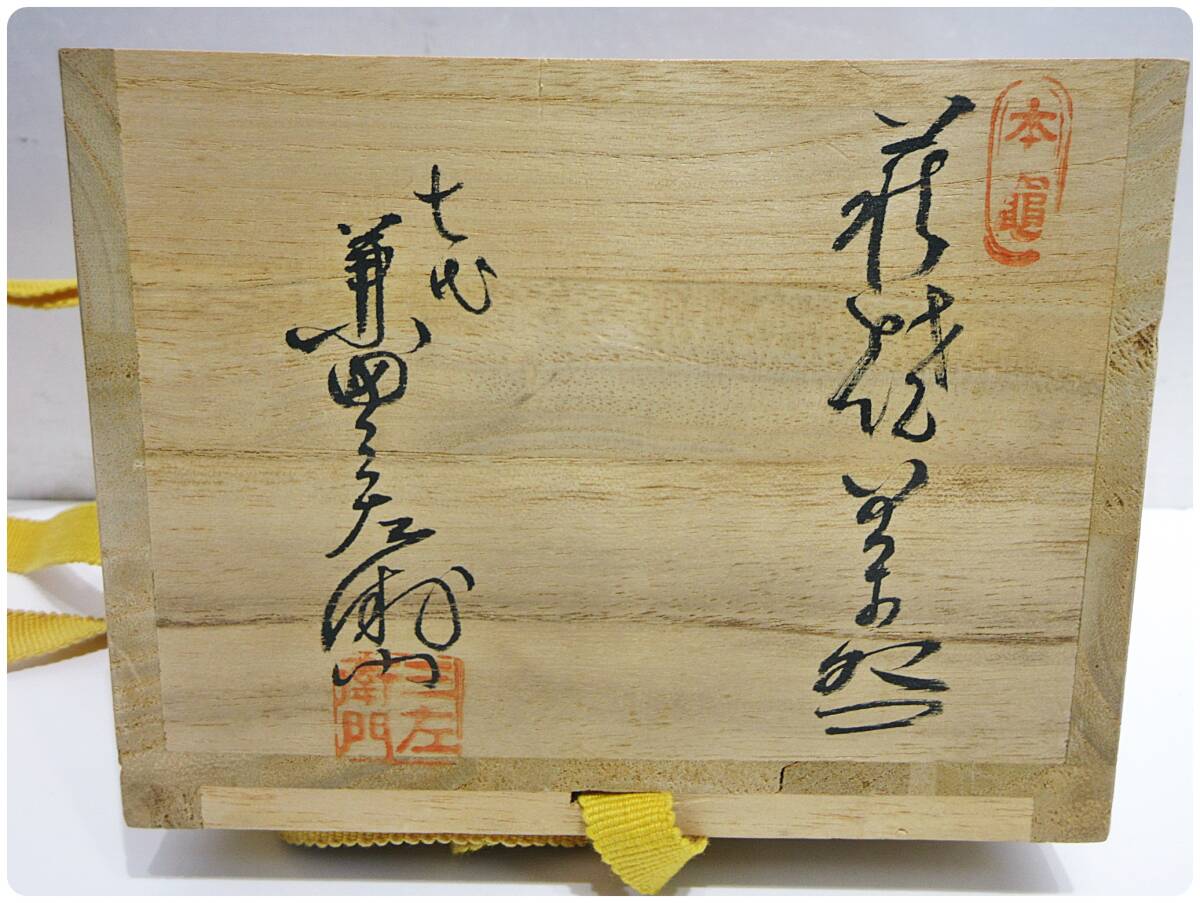 本
萩焼茶盌
七代
兼田三左衛門
三左
衛門